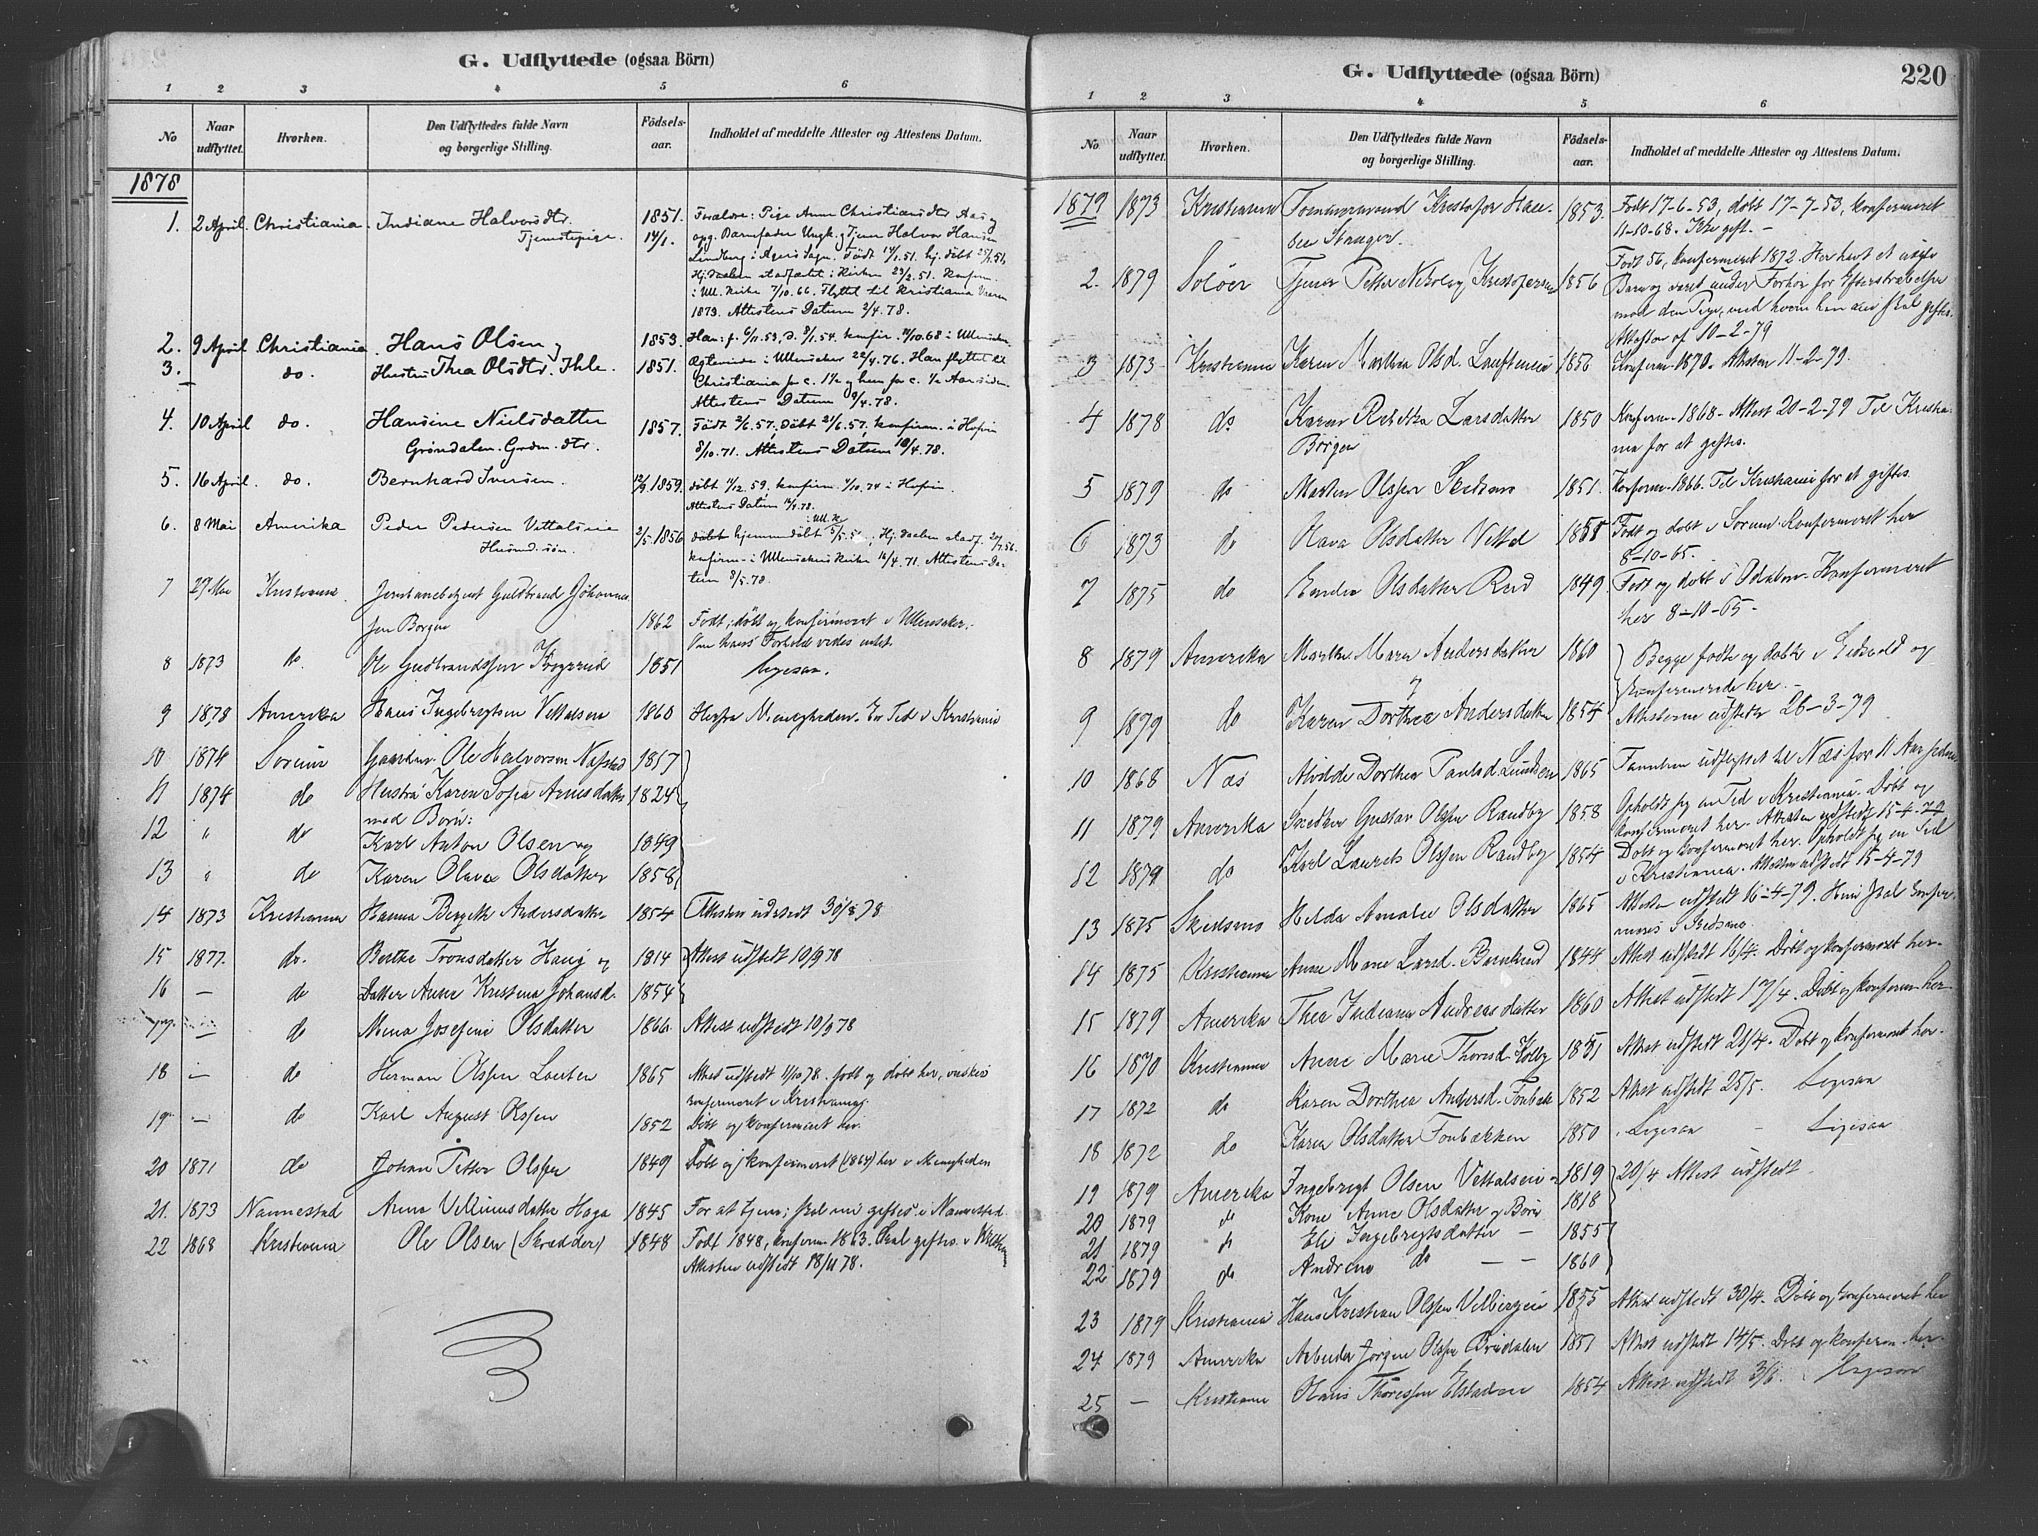 G. Udflyttede (ogsaa Börn)
1 2 3 4 5 6
No
Naar udflyttet.
Hvorhen.
Den Udflyttedes fulde Navn og borgerlige Stilling.
Födsels-aar.
Indholdet af meddelte Attester og Attestens Datum.
1878
1. 2 April Christiania. Indiane Halvorsdtr. 1851. Forældre: Pige Anne Christiansdtr
Tjenestepige. 14/1. opg. Barnefader Ungk. og Tjener Halvor Hansen
i Agers Sogn. Födt 14/1.51. hj. döbt
Hj. daaben stadfæstet i Kirken 23/2.51. konfirm.
i Ull. Kirke 7/10.66. Flyttet til Kristiania Vaaren
1873. Attestens Datum 2/4.78.
2. 9 April Christiania. Hans Olsen og 1853. Han: f. 6/11.53, d. 8/1.54. konfir. 11/10.68 i Ullensaker
3. do. Hustru Thea Olsdtr. Ihle. 1851. Ægteviede i Ullensaker 22/4.76. Han flyttet til
Christiania for c. 1½ og hun for c. ½ Aar siden.
Attestens Datum 9/4.78.
4. 10 April do. Hansine Nielsdatter 1857. Födt 2/6.57. Döbt 21/6.57. konfirm. i Hofin
Gröndalen. Grdm. dtr. 8/10.71. Attestens Datum 10/4.78.
5. 16 April. do. Bernhard Iversen. 12/9 1859. döbt 4/12.59. konfirm. 4/10.74 i Hofin.
Attestens Datum 16/4.78.
6. 8 Mai Amerika Peder Pedersen Vettalseie 2/5 1856 hjemmedöbt 5/5.56; Hj. daaben stadf.
Husmd. sön. konfirm. i Ullensakers Kirke 16/4.71. Attestens Da-
tum 8/5.78.
7 29 Mai Kristiania. Jernbanebetjent Guldbrand Johannes-
sen Borgen 1862 Födt, döbt og konfirmeret i Ullensaker.
Om hans Forhold vides intet.
8 1873 do. Ole Gudbrandssen 1851 Ligesaa.
9 1878 Amerika Hans Ingebregtsen Vettalseie 1860 Herfra Menigheden. En Tid i Kristiania
10 1874 Sorum Gaardbr. Ole Halvorsen 1817
11 1874 do Hustru Karen Sofia Arnesdatter 1824
med Börn:
12 " do Karl Anton Olsen og 1849
13 " do Karen Olava Olsdatter 1858
14 1873 Kristiania Hanna Bergith Andersdatter 1854 Attesten udstedt 30/8 78
15 1877. do. Berthe Tronsdatter Haug og 1814 Attest udstedt 10/9 78
16 — do Datter Anne Kristina Johansd. 1854
17. — do Mina Josefine Olsdatter 1866 Attest udstedt 10/9 78
18 — do Herman Olssen 1865 Attest udstedt 11/10 78. födt og döbt her, önskes
konfirmeret i Kristiania.
19 — do Karl August Olssen 1852 Döbt og konfirmeret her.
20 1871 do Johan Petter Olssen 1849 Döbt og konfirmeret (1864) her i Menigheden
21. 1873 Nannestad Anna Haga 1845 For at tjene; skal nu giftes i Nannestad
22 1868 Kristiania Ole Olsen (Skrædder) 1848 Födt 1848, konfirm. 1863. Skal giftes i
Attesten udstedt 18/11 78.
G. Udflyttede (ogsaa Börn)
220
1 2 3 4 5 6
No.
Naar udflyttet.
Hvorhen.
Den Udflyttedes fulde Navn og borgerlige Stilling.
Födsels-aar.
Indholdet af meddelte Attester og Attestens Datum.
1879 1873 Kristiania Tömmermand Kristofer 1853. Födt 17-6-53, döbt 17-7-53, konfirmeret
11-10-68. Ikke gift. —
2. 1879 Solöer Tjener Petter Nikolay Kristofersen 1856 Födt 56, konfirmeret 1872. Har havt et uægte
Barn og været under Forhör for Efterstræbelser
mod den Pige, med hvem han der skal giftes.
Attesten af 10-2-79
3 1873 Kristiania Karen Marthea Olsd. 1856 Konfirm. 1870. Attesten 11-2-79.
4 1878 do Karen Rebekka Larsdatter 1850 Konfirm. 1868. Attest 20-2-79 Til Kristia-
Börgen nia for at giftes.
5 1879 do Morten Olssen 1851. Konfirm. 1866. Til Kristiania for at giftes.
6 1873 do Olava Olsdatter Vettal Födt og döbt i Sorum. Konfirmeret her
8-10-65.
7 1875 do Olsdatter 1849. Födt og döbt i Odalen. Konfirmeret
her 8-10-65.
8 1879 Amerika Marthe Maria Andersdatter 1860 Begge födte og döbte i Eidsvold og
og konfirmerede her. —
9 1879 do Karen Dorthea Andersdatter 1854 Attesterne udstedt 26-3-79
10 1868 Næs Alvilde Dorthea Paulsd. 1865 Familien udflyttet til Næs for 11 Aar siden
11 1879 Amerika Gustav Olssen Randby 1858 Opholdt sig en Tid i Kristiania. Döbt og
konfirmeret her. Attesten udstedt 15-4-79
12 1879 do Karl Laurits Olssen Randby 1854 Döbt og konfirmeret her. Opholdt sig en Tid
i Kristiania. Attesten udstedt 15-4-79
13 1875 Skedsmo Hilda Amalie Olsdatter 1865 Attest udstedt 16-4-79. Hun skal konfir-
meres i Skedsmo.
14 1875 Kristiania Anne Marie Larsd. 1844 Attest udstedt 16/4. Döbt og konfirmeret her.
15 1879 Amerika Thea Indiana Andreasdatter 1860 Attest udstedt 17/4. Döbt og konfirm. her.
16 1870 Kristiania Anne Marie Thorsd. 1851 Attest udstedt 21/4. Döbt og konfirmeret her.
17 1872 do Karen Dorthea Andersd. 1852 Attest udstedt 25/5. Ligesaa
18 1872 do Karen Olsdatter Fonbækken 1850 Ligesaa — Ligesaa
19 1879 Amerika Ingebregt Olsen Vettalseie 1819 20/4 Attest udstedt.
20 1879 do Kone Anne Olsdatter og Börn 1818
21 1879 do Eli Ingebregtsdatter — 1855
22 1879 do Andrine do — — 1860
23 1879 Kristiania Hans Kristian Olssen 1855 Attest udstedt 30/4. Döbt og konfirmeret her
24 1879 Amerika Arbeider Jörgen Olssen 1857 Attest udstedt 14/5. Döbt og konfirm. her.
25 — Kristiania Thoressen 1854 Attest udstedt 3/6. Ligesaa